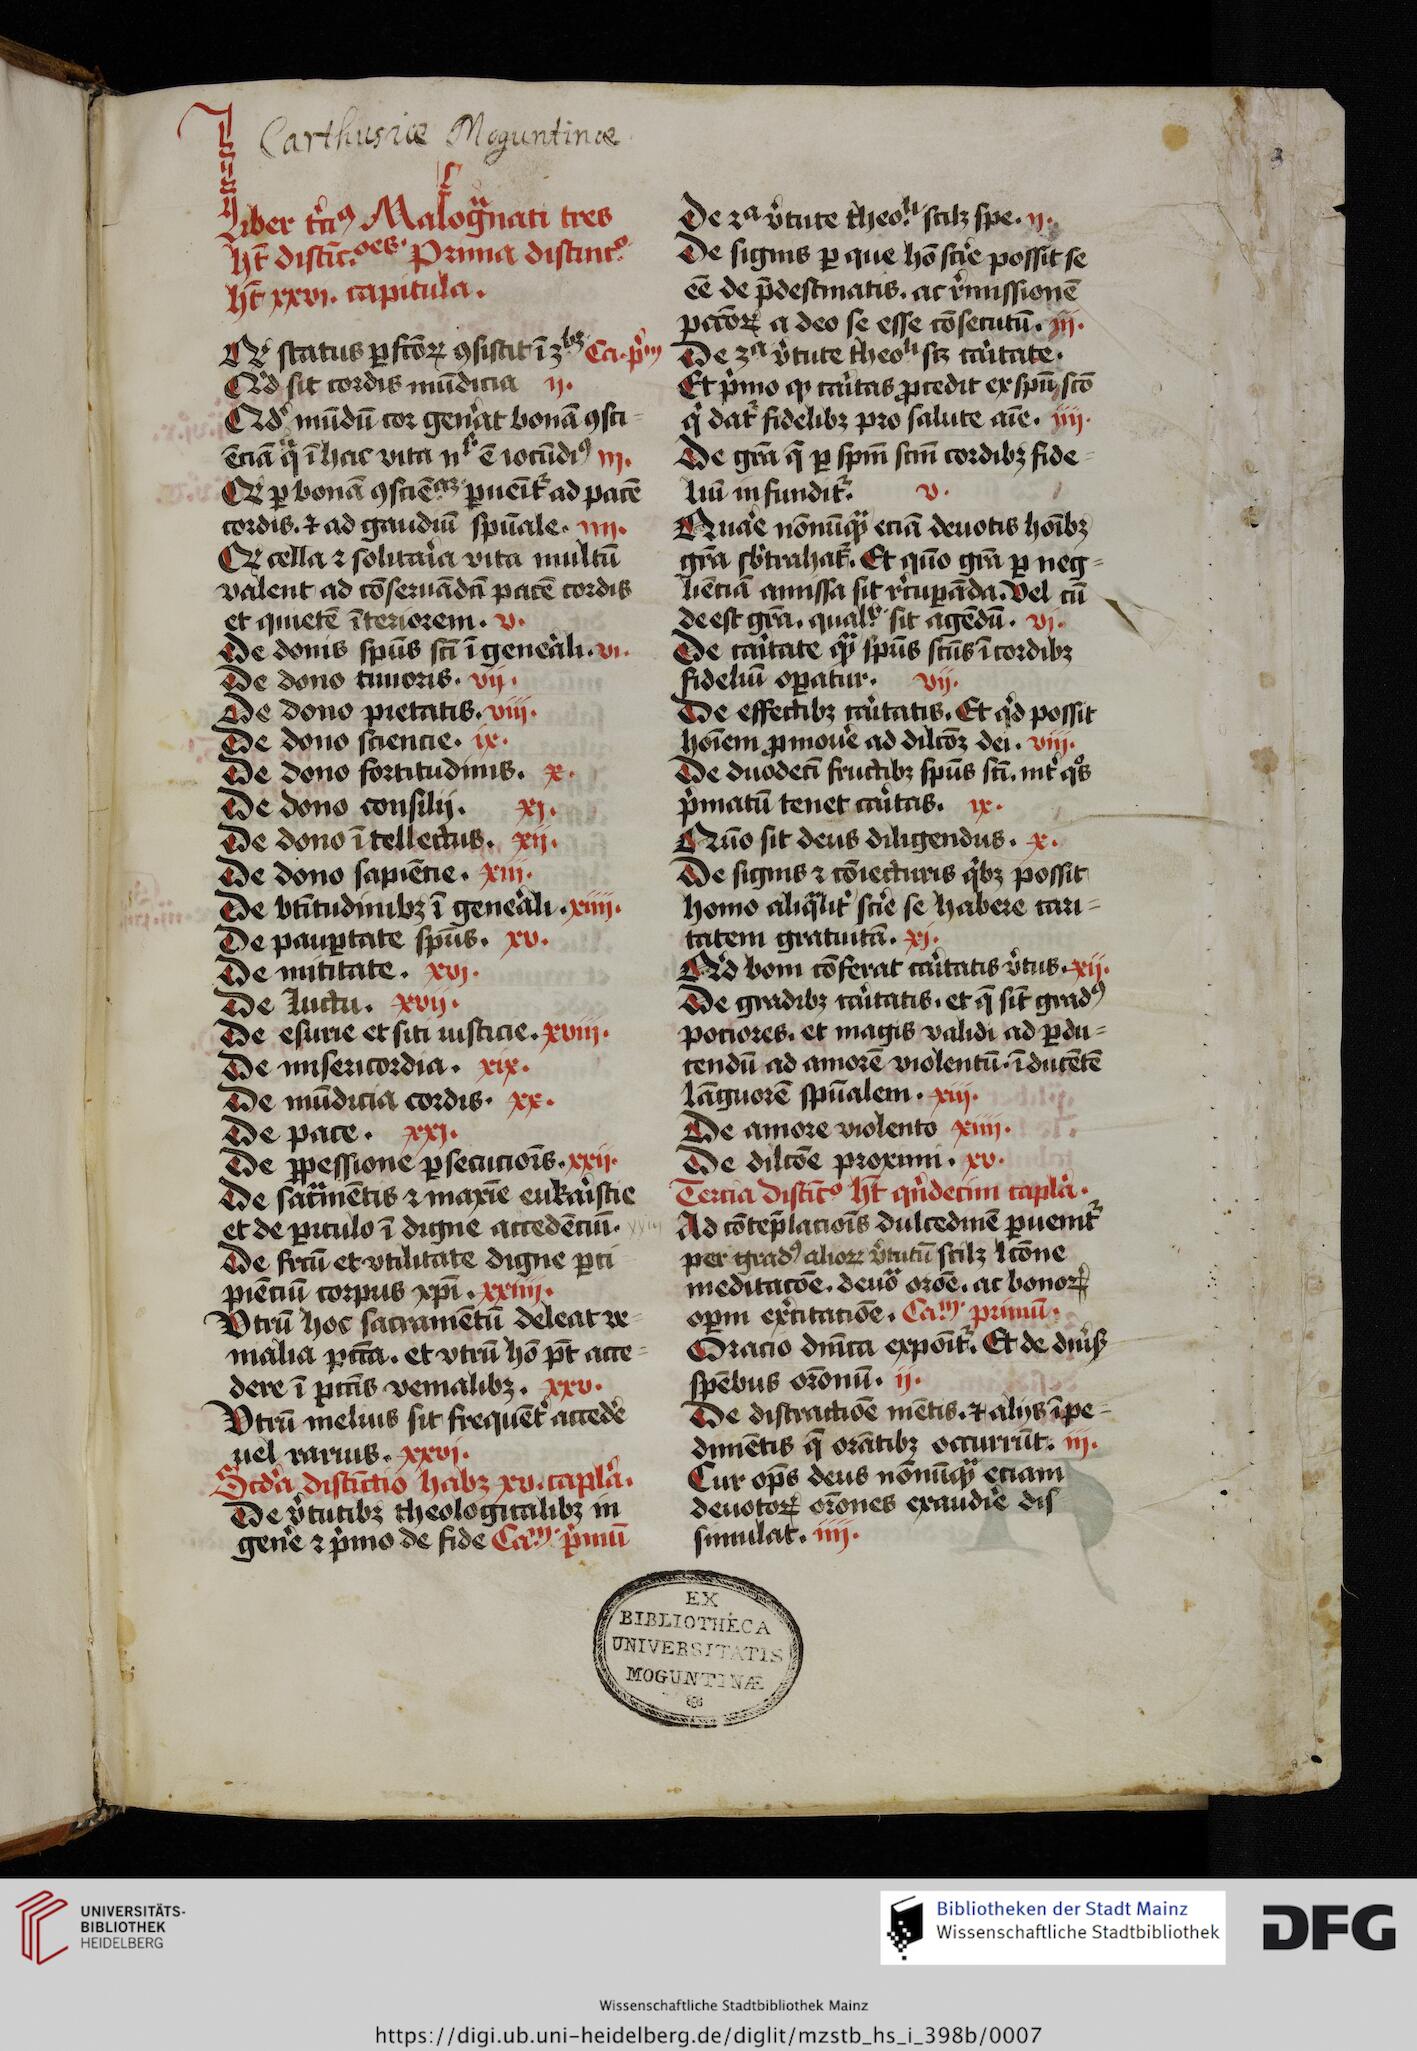 Carthusiæ Moguntinæ
3
Liber tc̄iꝰ Malogᷓnati tres
hꝫ distīc̄oēs. Prima distinc̄o
hꝫ xxvi. capitula.
Qꝫ status ꝑfc̄oꝝ ꝯsistit ī 3bꝫ Ca. pͥm
Qͥd sit cordis mūdicia ij.
Qd mūdū cor gen̄at bonā ꝯsci-
ēciā qᷓ ī hac vita ē iocūdiꝰ iij.
Qꝫ ꝑ bonā ꝯsciēciā ꝑuēit᷑ ad pacē
cordis. ⁊ ad gaudiū spūale. iiij.
Qꝫ cella ⁊ solitaͥa vita multū
valent ad cōseruādā pacē cordis
et quietē īteriorem. v.
De donis spūs scī ī gene᷑ali. vi.
De dono timoris. vij.
De dono pietatis. viij.
De dono sciencie. ix.
De dono fortitudinis. x.
De dono consilij. xj.
De dono ītellectus. xij.
De dono sapiēcie. xiij.
De btītudinibꝫ ī gene᷑ali. xiiij.
De pauꝑtate spūs. xv.
De mititate. xvj.
De luctu. xvij.
De esurie et siti iusticie. xviij.
De misericordia. xix.
De mūdicia cordis. xx.
De pace. xxj.
De ꝑpessione ꝑsecucioīs. xxij.
De sacᷓmētis ⁊ maxīe eukaͥstie
et de ꝑiculo ī digne accedēciū. xxiij
De fctū et vtilitate digne ꝑci
piēciū corpus xp̄i. xxiiij.
Vtrū hoc sacramētū deleat ve-
nialia pctā. et vtrū hō pt̄ acce-
dere ī pctīs venialibꝫ. xxv.
Vtrū melius sit frequēt᷑ accede᷑
uel rarius. xxvi.
Scd̄a distīctio habꝫ xv. capl̄a.
De v᷑tutibꝫ theologicalibꝫ in
gene᷑ ⁊ pͥmo de fide Cam. pͥmū
De 2a v᷑tute theoli scilꝫ spe. ij.
De signis ꝑ que hō scie᷑ possit se
eē de p̄destinatis. ac r᷑missionē
pcc̄oꝝ a deo se esse cōsecutū. iij.
De 3a v᷑tute theoli scꝫ caͥtate.
Et pͥmo qꝫ caͥtas ꝓcedit ex spū scō
qͥ dat᷑ fidelibꝫ pro salute aīe. iiij.
De grā q̄ ꝑ spm̄ scm̄ cordibꝫ fide-
liū infundit᷑. v.
Qua᷑e nōnūqᷓ eciā deuotis hoībꝫ
grā sb᷑trahat᷑. Et quō grā ꝑ neg-
liēciā amissa sit r᷑cuꝑāda. Vel cū
deest grā. qualr̄ sit agēdū. vj.
De caͥtate qᷓ spūs scūs ī cordibꝫ
fideliū oꝑatur. vij.
De effectibꝫ caͥtatis. Et qͥd possit
hoīem ꝓmoue᷑ ad dilc̄oꝫ dei. viij.
De duodecī fructibꝫ spūs scī. int᷑ qͦs
pͥmatū tenet caͥtas. ix.
Quō sit deus diligendus. x.
De signis ⁊ cōiecturis qͥbꝫ possit
homo aliqᷓlit᷑ scie᷑ se habere cari-
tatem gratuitā. xj.
Qͥd boni cōferat caͥtatis v᷑tus. xij.
De gradibꝫ caͥtatis. et q̄ sīt gradꝰ
pociores. et magis validi ad ꝑdu-
cendū ad amorē violentū. īducētē
lāguorē spūalem. xiij.
De amore violento xiiij.
De dilcōe proximi. xv.
Tercia distīc̄o hꝫ qͥndecim capl̄a.
Ad cōtēplacioīs dulcedinē ꝑuenit᷑
per gradꝰ alioꝝ v᷑tutū scilꝫ lcōne
meditacōe. deuoᷓ orōe. ac bonoꝝ
opm̄ ex᷑citatiōe. Cam. primū.
Oracio dn̄ica expoīt᷑. Et de diu᷑ꝭ
spēbus orōnū. ij.
De distractiōe mētis. ⁊ alijs īpe-
dimētis q̄ orātibꝫ occurrūt. iij.
Cur op̄s deus nōnūqᷓ eciam
deuotoꝝ orōnes exaudie᷑ dis
simulat. iiij.
EX
BIBLIOTHÉCA
UNIVERSITATIS
MOGUNTINÆ
UNIVERSITÄTS-
BIBLIOTHEK
HEIDELBERG
Bibliotheken der Stadt Mainz
Wissenschaftliche Stadtbibliothek
DFG
Wissenschaftliche Stadtbibliothek Mainz
https://digi.ub.uni-heidelberg.de/diglit/mzstb_hs_i_398b/0007